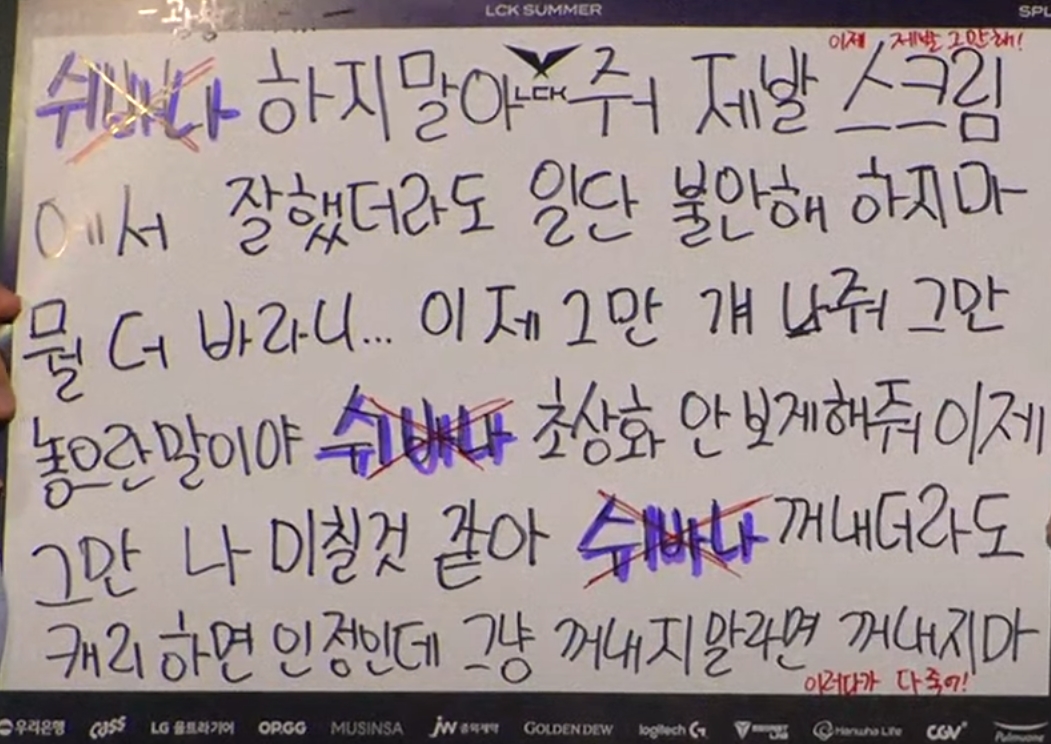 LCK SUMMER
이제 제발 그만해!
쉬바나 하지말아 LCK 줘 제발 스크림
에서 잘했더라도 일단 불안해 하지마
뭘 더 바라니... 이제 그만 걔 놔줘 그만
놓으란말이야 쉬바나 초상화 안보게해줘 이제
그만 나 미칠것 같아 쉬바나 꺼내더라도
캐리하면 인정인데 그냥 꺼내지말라면 꺼내지마
이러다가 다 죽어!
우리은행 cass LG 울트라기어 OP.GG MUSINSA jw 중외제약 GOLDENDEW logitech G Hanwha Life CGV Pulmuone